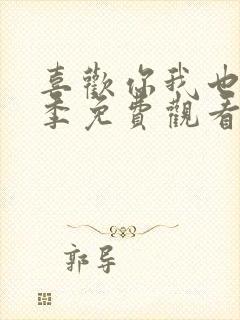 喜歡你我也
季免費觀看
郭导